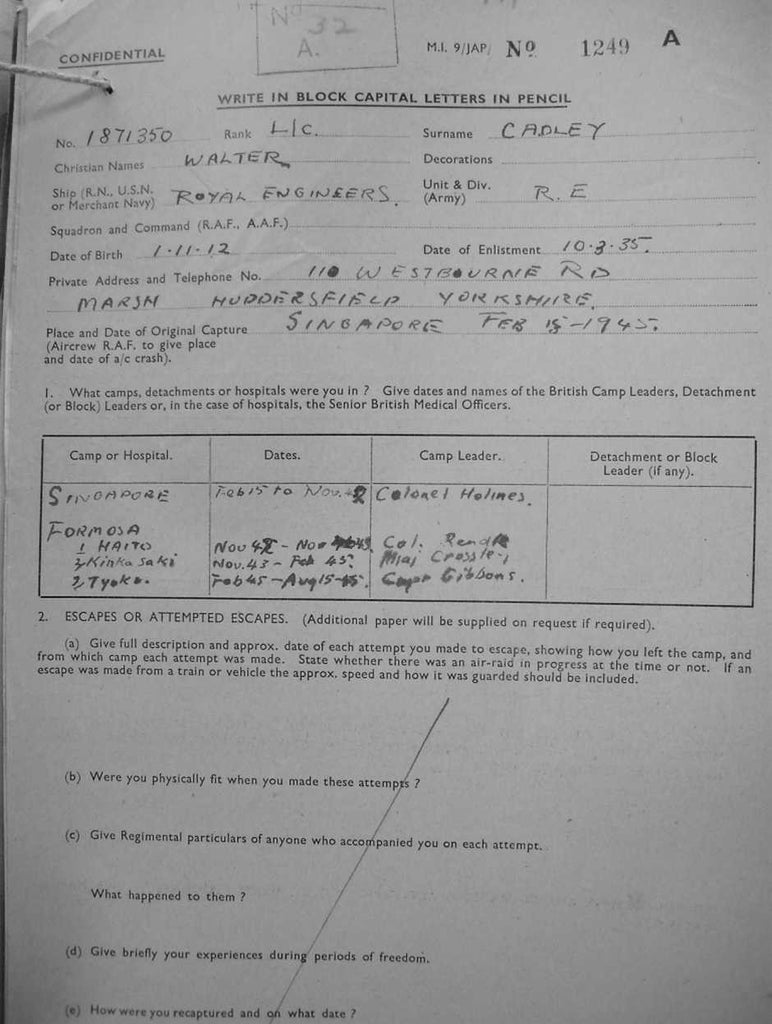 No 32
A.
CONFIDENTIAL
M.I. 9/JAP/ No 1249 A
WRITE IN BLOCK CAPITAL LETTERS IN PENCIL
No. 1871350 Rank L/C. Surname CADLEY
Christian Names WALTER Decorations
Ship (R.N., U.S.N. or Merchant Navy) ROYAL ENGINEERS. Unit & Div. (Army) R.E
Squadron and Command (R.A.F., A.A.F.)
Date of Birth 1-11-12 Date of Enlistment 10-3-35.
Private Address and Telephone No. 110 WESTBOURNE RD
MARSH HUDDERSFIELD YORKSHIRE.
Place and Date of Original Capture SINGAPORE FEB 15-1945.
(Aircrew R.A.F. to give place
and date of a/c crash).
1. What camps, detachments or hospitals were you in ? Give dates and names of the British Camp Leaders, Detachment
(or Block) Leaders or, in the case of hospitals, the Senior British Medical Officers.
Camp or Hospital. Dates. Camp Leader. Detachment or Block
Leader (if any).
SINGAPORE Feb 15 to Nov. 42 Colonel Holmes.
FORMOSA
1 HAITO Nov 42 - Nov Col.
Kinka saki Nov. 43 - Feb 45. Maj Crossley
Tyoko. Feb 45 - Aug 15-45. Gibbons.
2. ESCAPES OR ATTEMPTED ESCAPES. (Additional paper will be supplied on request if required).
(a) Give full description and approx. date of each attempt you made to escape, showing how you left the camp, and
from which camp each attempt was made. State whether there was an air-raid in progress at the time or not. If an
escape was made from a train or vehicle the approx. speed and how it was guarded should be included.
(b) Were you physically fit when you made these attempts ?
(c) Give Regimental particulars of anyone who accompanied you on each attempt.
What happened to them ?
(d) Give briefly your experiences during periods of freedom.
(e) How were you recaptured and on what date ?